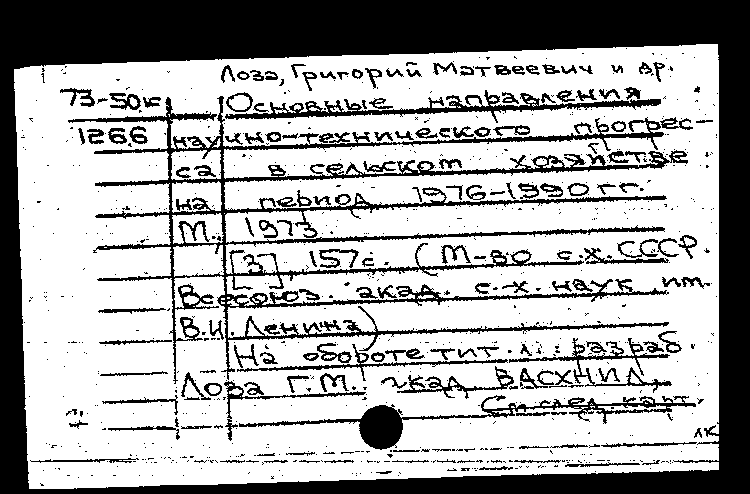 Лоза, Григорий Матвеевич и др.
73-50к Основные направления
1266 научно-технического прогрес-
са в сельском хозяйстве
на период 1976-1990 гг.
М., 1973
[3], 157с. (М-во с.х. СССР.
Всесоюз. акад. с.-х. наук им.
В.И. Ленина)
На обороте тит. л.: разраб.
Лоза Г.М. акад ВАСХНИЛ,
См след карт.
лк